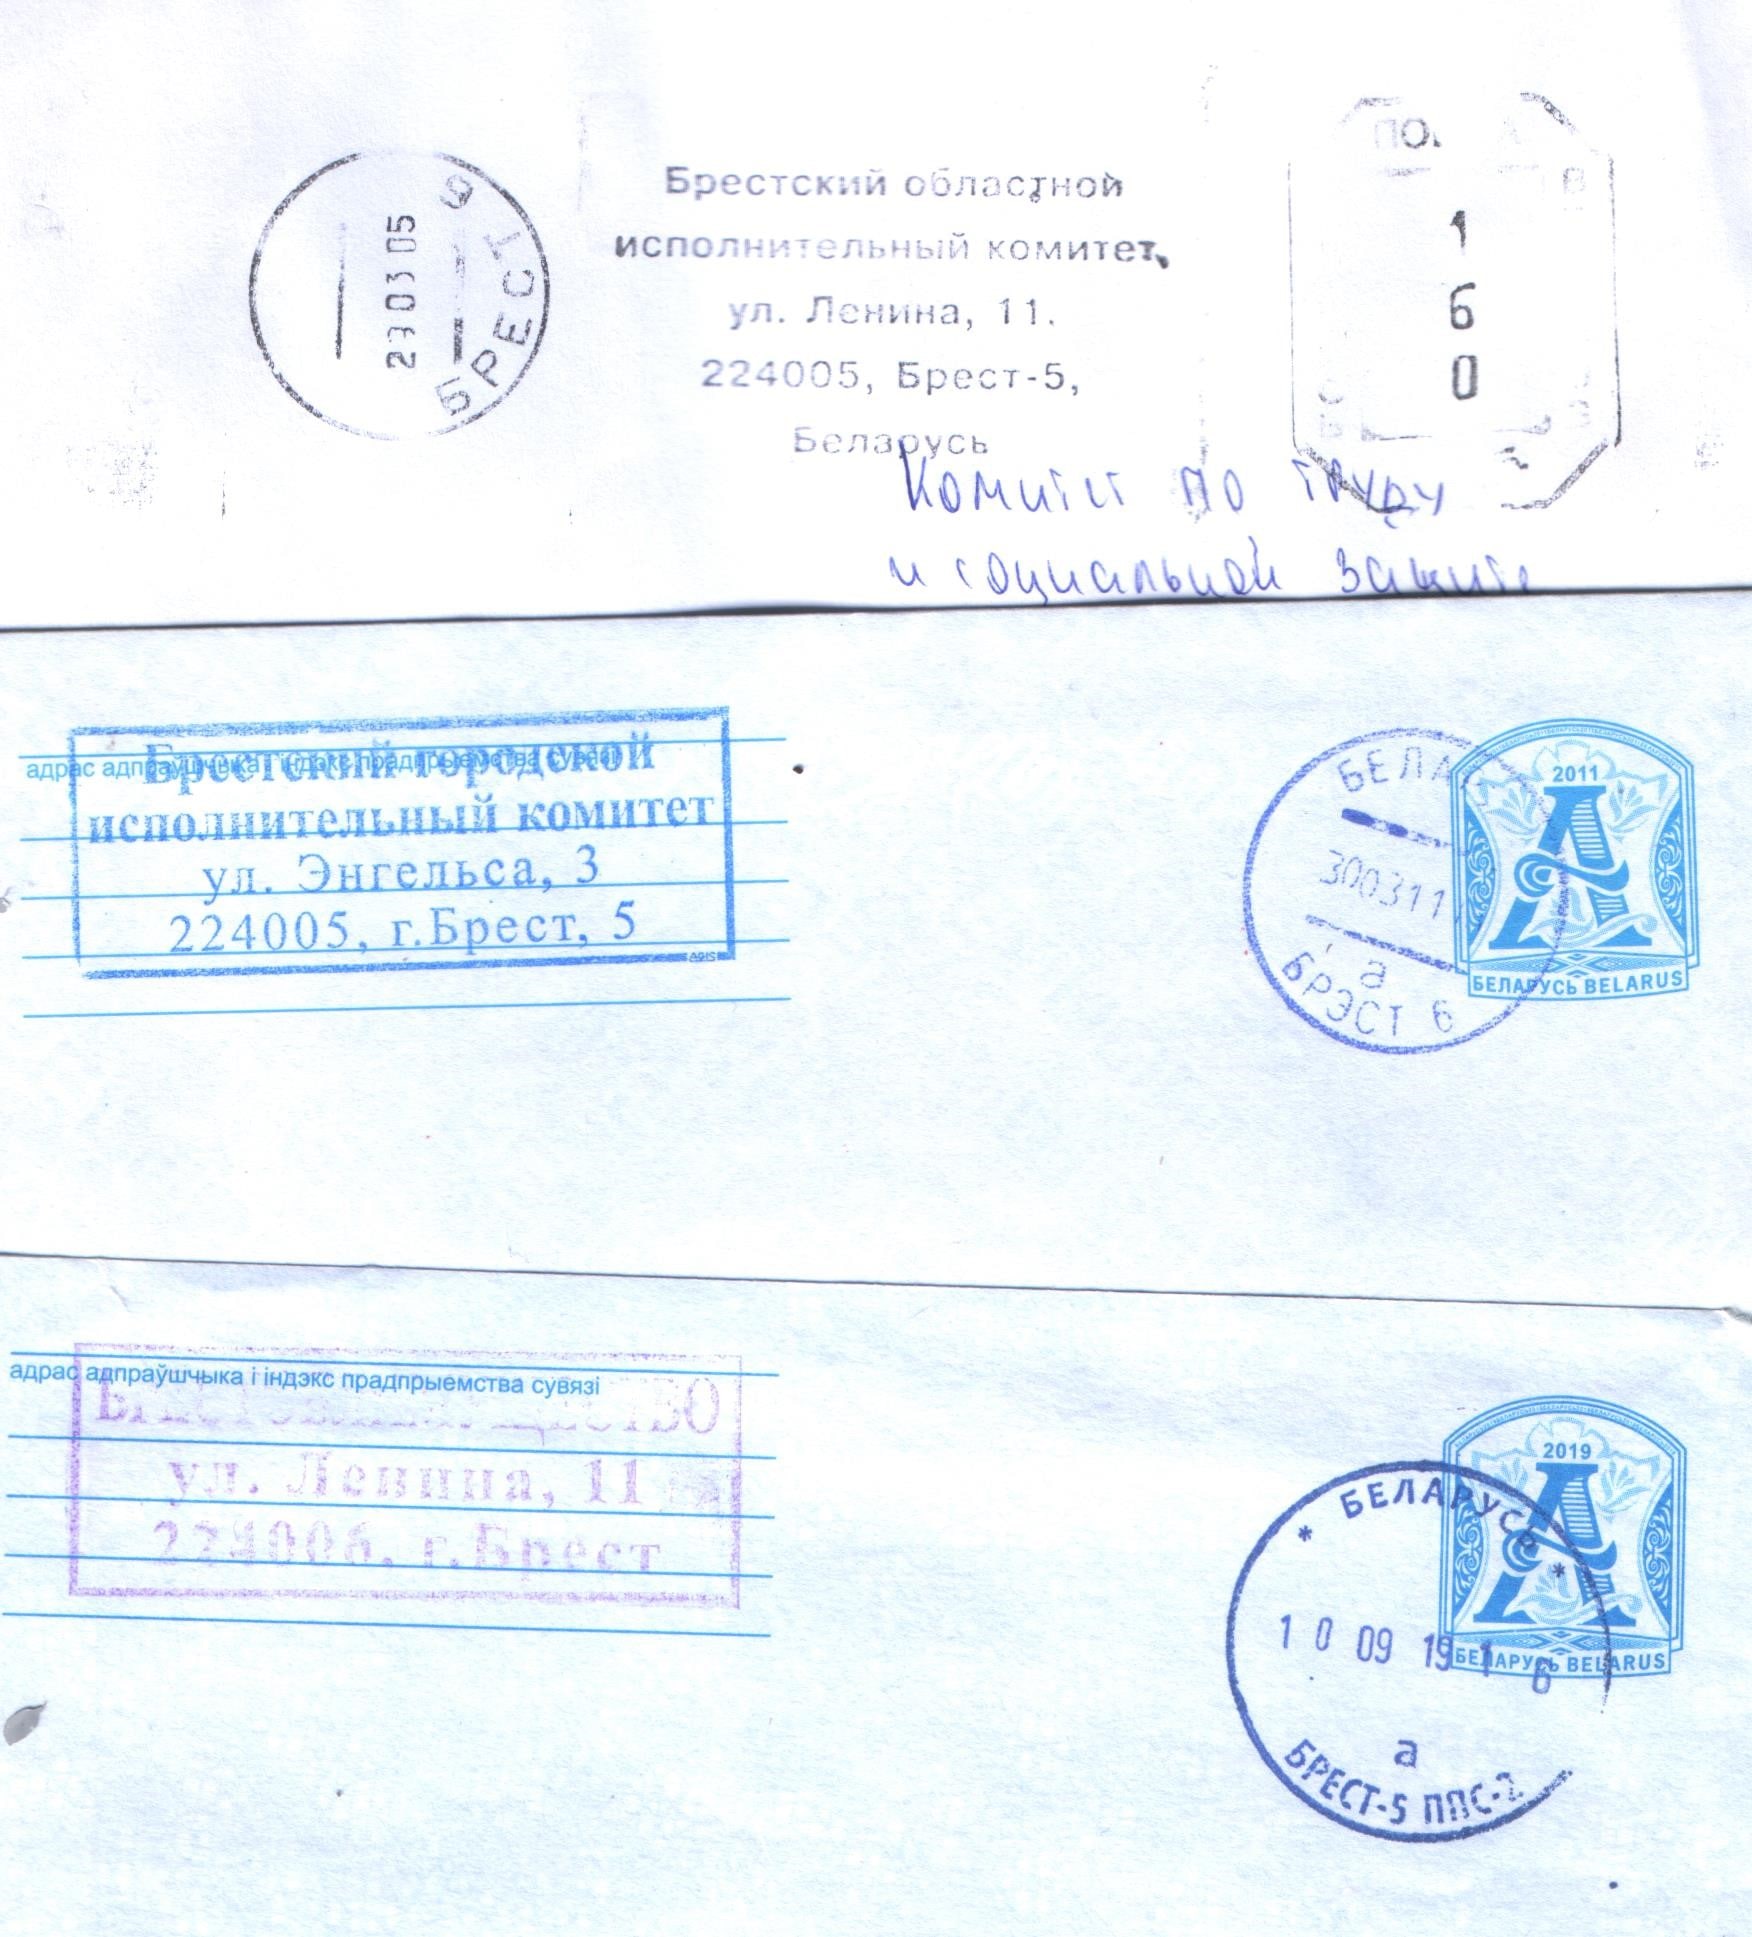 БРЕСТ 9
29 03 05
Брестский областной
исполнительный комитет,
ул. Ленина, 11.
224005, Брест-5,
Беларусь
1
6
0
Комитет по труду
и социальной защите
адрас адпраўшчыка і індэкс прадпрыемства сувязі
Брестский городской
исполнительный комитет
ул. Энгельса, 3
224005, г.Брест, 5
БЕЛА
30 03 11
а
БРЭСТ 6
2011
А
БЕЛАРУСЬ BELARUS
адрас адпраўшчыка і індэкс прадпрыемства сувязі
ул. Ленина, 11
г.Брест
* БЕЛАРУСЬ *
10 09 19 1 6
а
БРЕСТ-5 ППС-2
2019
А
БЕЛАРУСЬ BELARUS